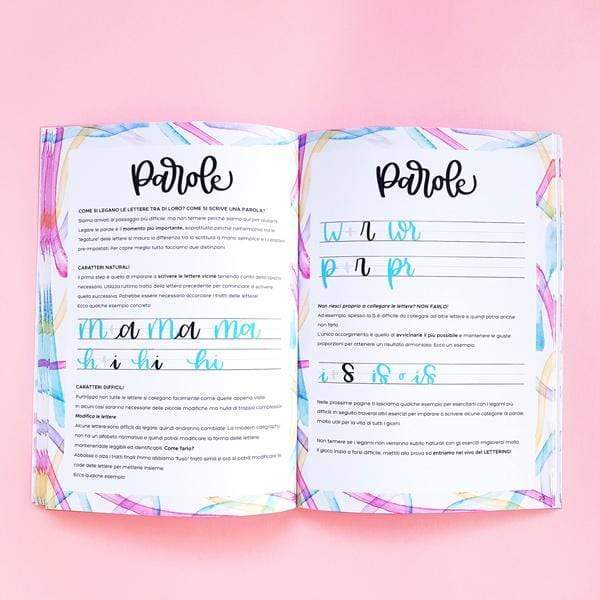 Parole
COME SI LEGANO LE LETTERE TRA DI LORO? COME SI SCRIVE UNA PAROLA?
Siamo arrivati al passaggio più difficile, ma non temere perché siamo qui per aiutarti.
Legare le parole è il momento più importante, soprattutto perché nell'armonia tra le
"legature" delle lettere si misura la differenza tra la scrittura a mano semplice e i caratteri
pre-impostati. Per capire meglio tutto, facciamo due distinzioni:
CARATTERI NATURALI
Il primo step è quello di imparare a scrivere le lettere vicine tenendo conto dello spazio
necessario. Utilizza l'ultimo tratto della lettera precedente per cominciare a scrivere
quella successiva. Potrebbe essere necessario accordare i tratti delle lettere!
Ecco qualche esempio concreto:
M+a Ma Ma
h+i hi hi
CARATTERI DIFFICILI
Purtroppo non tutte le lettere si collegano facilmente come quelle appena viste.
In alcuni casi saranno necessarie delle piccole modifiche ma nulla di troppo complesso!
Modifica le lettere
Alcune lettere sono difficili da legare, quindi andranno cambiate. La modern calligraphy
non ha un alfabeto normativo e quindi potrai modificare la forma delle lettere,
mantenendole leggibili ed identificabili. Come farlo?
Abbassa o alza i tratti finali (nomina
Ecco qualche esempio:
Parole
w+r wr
p+r pr
Non riesci proprio a collegare le lettere? NON FARLO!
Ad esempio, spesso la S è difficile da collegare ad altre lettere e quindi potrai anche
non farlo.
L'unico accorgimento è quello di avvicinarle il più possibile e mantenere le giuste
proporzioni per ottenere un risultato armonioso. Ecco un esempio:
i+S iS o iS
Nelle prossime pagine ti lasciamo qualche esempio per esercitarti con i legami più
difficili. In seguito troverai altri esercizi per imparare a scrivere alcune categorie di parole,
molto utili per la vita di tutti i giorni!
Non temere se i legami non verranno subito naturali: con gli esercizi migliorerai molto.
Il gioco inizia a farsi difficile, mettiti alla prova ed entriamo nel vivo del LETTERING!